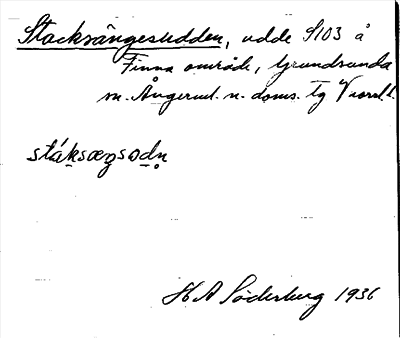 Stocksängesudden, udde S103 å
Finna område, Grundsunda
sn. Ångerml. n. doms. tg Vnorrl. l.
stáksæŋsɔdn̥
H A Söderberg 1936